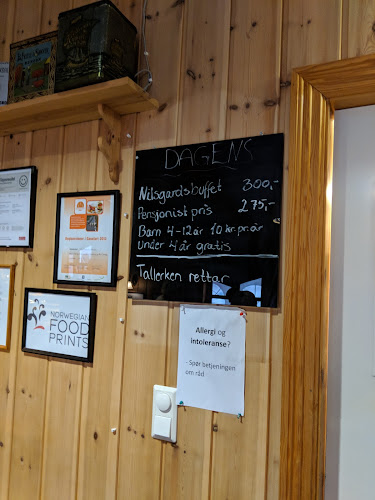 DAGENS
Nilsgardsbuffet 300,-
Pensjonist pris 275,-
Barn 4-12 år 10 kr.pr.år
Under 4 år gratis
Tallerken rettar
NORWEGIAN
FOOD
PRINTS
Allergi og
intoleranse?
- Spør betjeningen
om råd